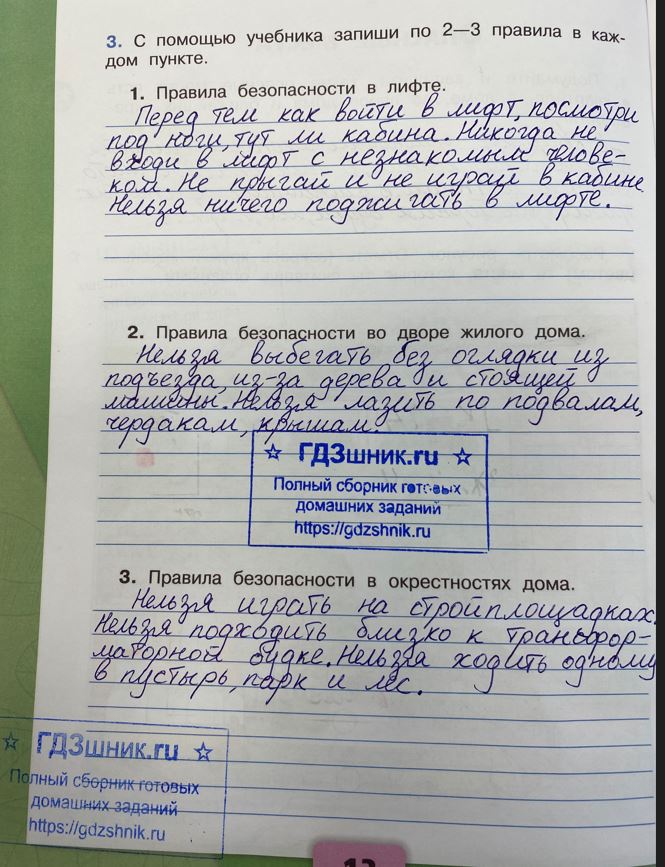 3. С помощью учебника запиши по 2—3 правила в каж-
дом пункте.
1. Правила безопасности в лифте.
Перед тем как войти в лифт, посмотри
под ноги, тут ли кабина. Никогда не
входи в лифт с незнакомым челове-
ком. Не прыгай и не играй в кабине
Нельзя ничего поджигать в лифте.
2. Правила безопасности во дворе жилого дома.
Нельзя выбегать без оглядки из
подъезда, из-за дерева и стоящей
машины. Нельзя лазить по подвалам,
чердакам, крышам.
☆ ГДЗшник.ru ☆
Полный сборник готовых
домашних заданий
https://gdzshnik.ru
3. Правила безопасности в окрестностях дома.
Нельзя играть на стройплощадках.
Нельзя подходить близко к трансфор-
маторной будке. Нельзя ходить одному
в пустырь, парк и лес.
☆ ГДЗшник.ru ☆
Полный сборник готовых
домашних заданий
https://gdzshnik.ru